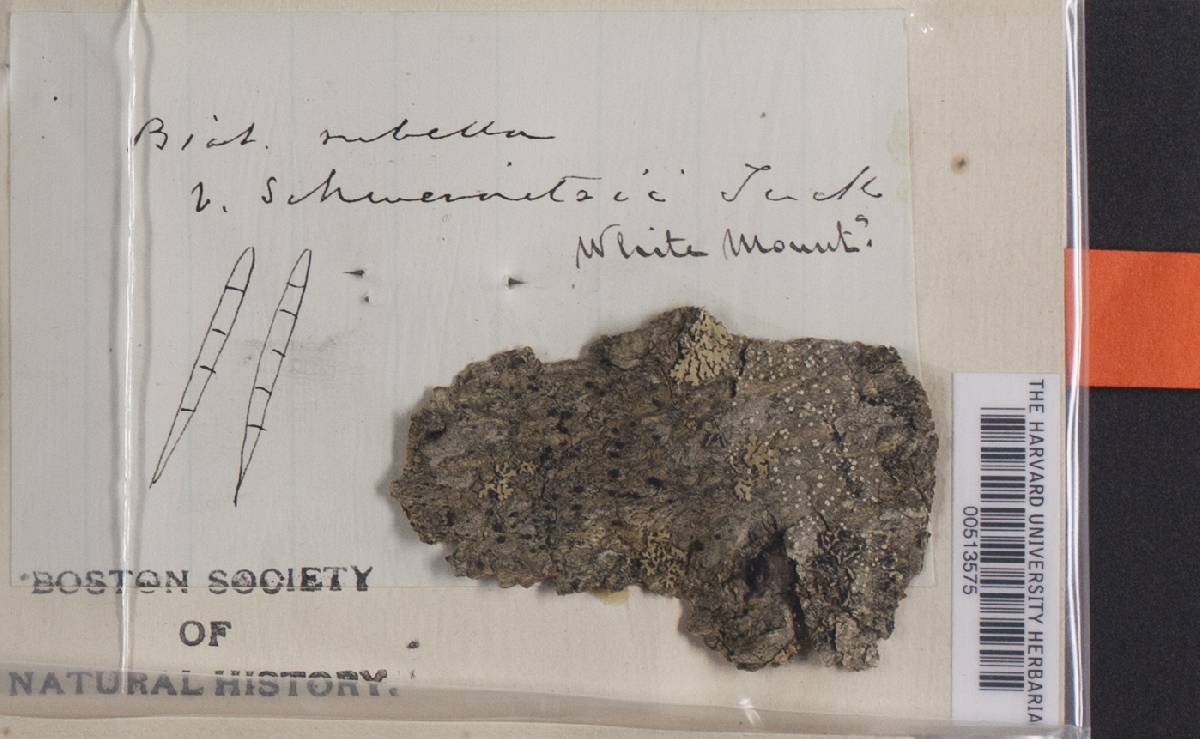 Biat. rubella
v. Schweinitzii Tuck
White Mount.s
BOSTON SOCIETY
OF
NATURAL HISTORY.
THE HARVARD UNIVERSITY HERBARIA
00513575